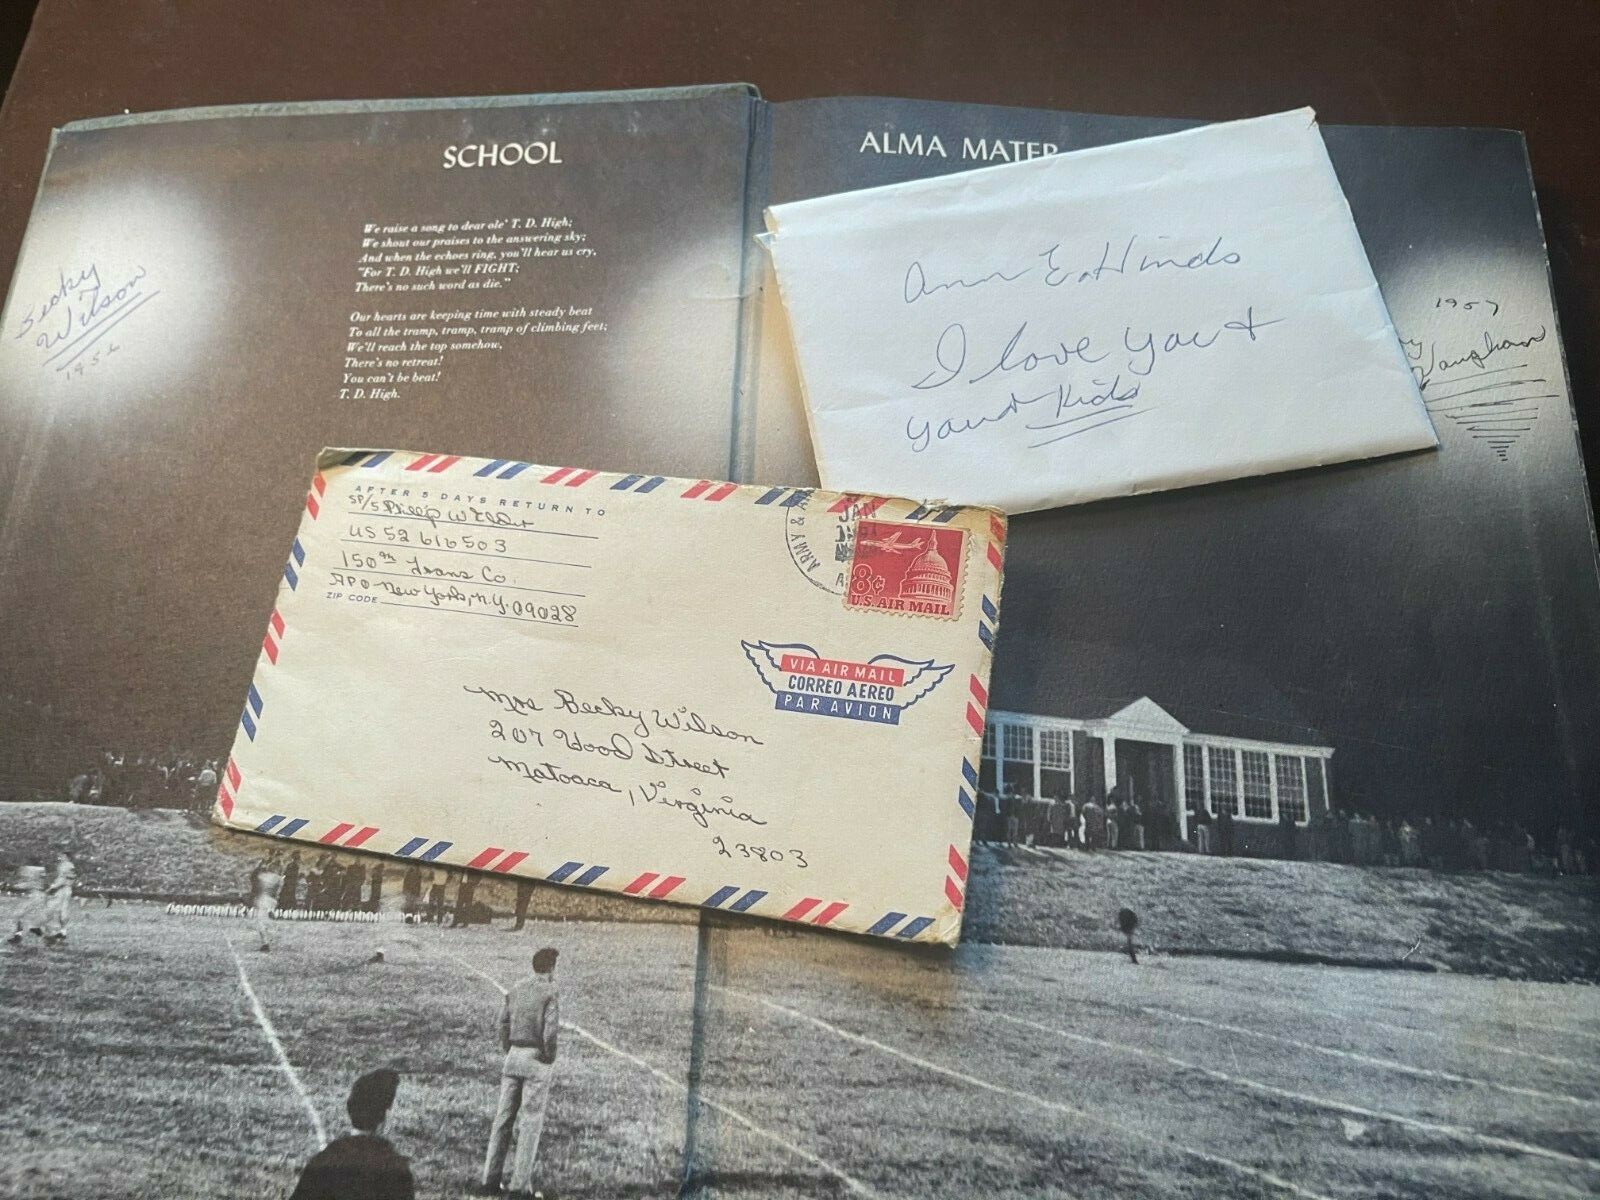 SCHOOL
We raise a song to dear ole' T. D. High;
We shout our praises to the answering sky;
And when the echoes ring, you'll hear us cry,
"For T. D. High we'll FIGHT;
There's no such word as die."
Our hearts are keeping time with steady beat
To all the tramp, tramp, tramp of climbing feet;
We'll reach the top somehow,
There's no retreat!
You can't be beat!
T. D. High.
Becky
Wilson
ALMA MATER
Ann E. Hinds
I love you &
your Kids
1957
Vaughan
AFTER 5 DAYS RETURN TO
SP/5 Phillip
US 52 616503
150th Trans Co.
APO New York, N.Y. 09028
ZIP CODE
ARMY &
JAN
8¢
U.S. AIR MAIL
VIA AIR MAIL
CORREO AEREO
PAR AVION
Mrs Becky Wilson
207 Wood Street
Matoaca, Virginia
23803